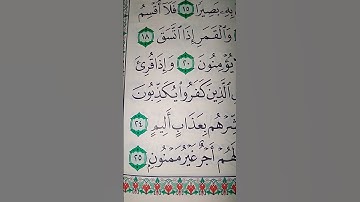 بِهِۦ بَصِيرًا ١٥ فَلَآ أُقْسِمُ
وَٱلْقَمَرِ إِذَا ٱتَّسَقَ ١٨
يُؤْمِنُونَ ٢٠ وَإِذَا قُرِئَ
ٱلَّذِينَ كَفَرُوا۟ يُكَذِّبُونَ
بَشِّرْهُم بِعَذَابٍ أَلِيمٍ ٢٤
لَهُمْ أَجْرٌ غَيْرُ مَمْنُونٍ ٢٥